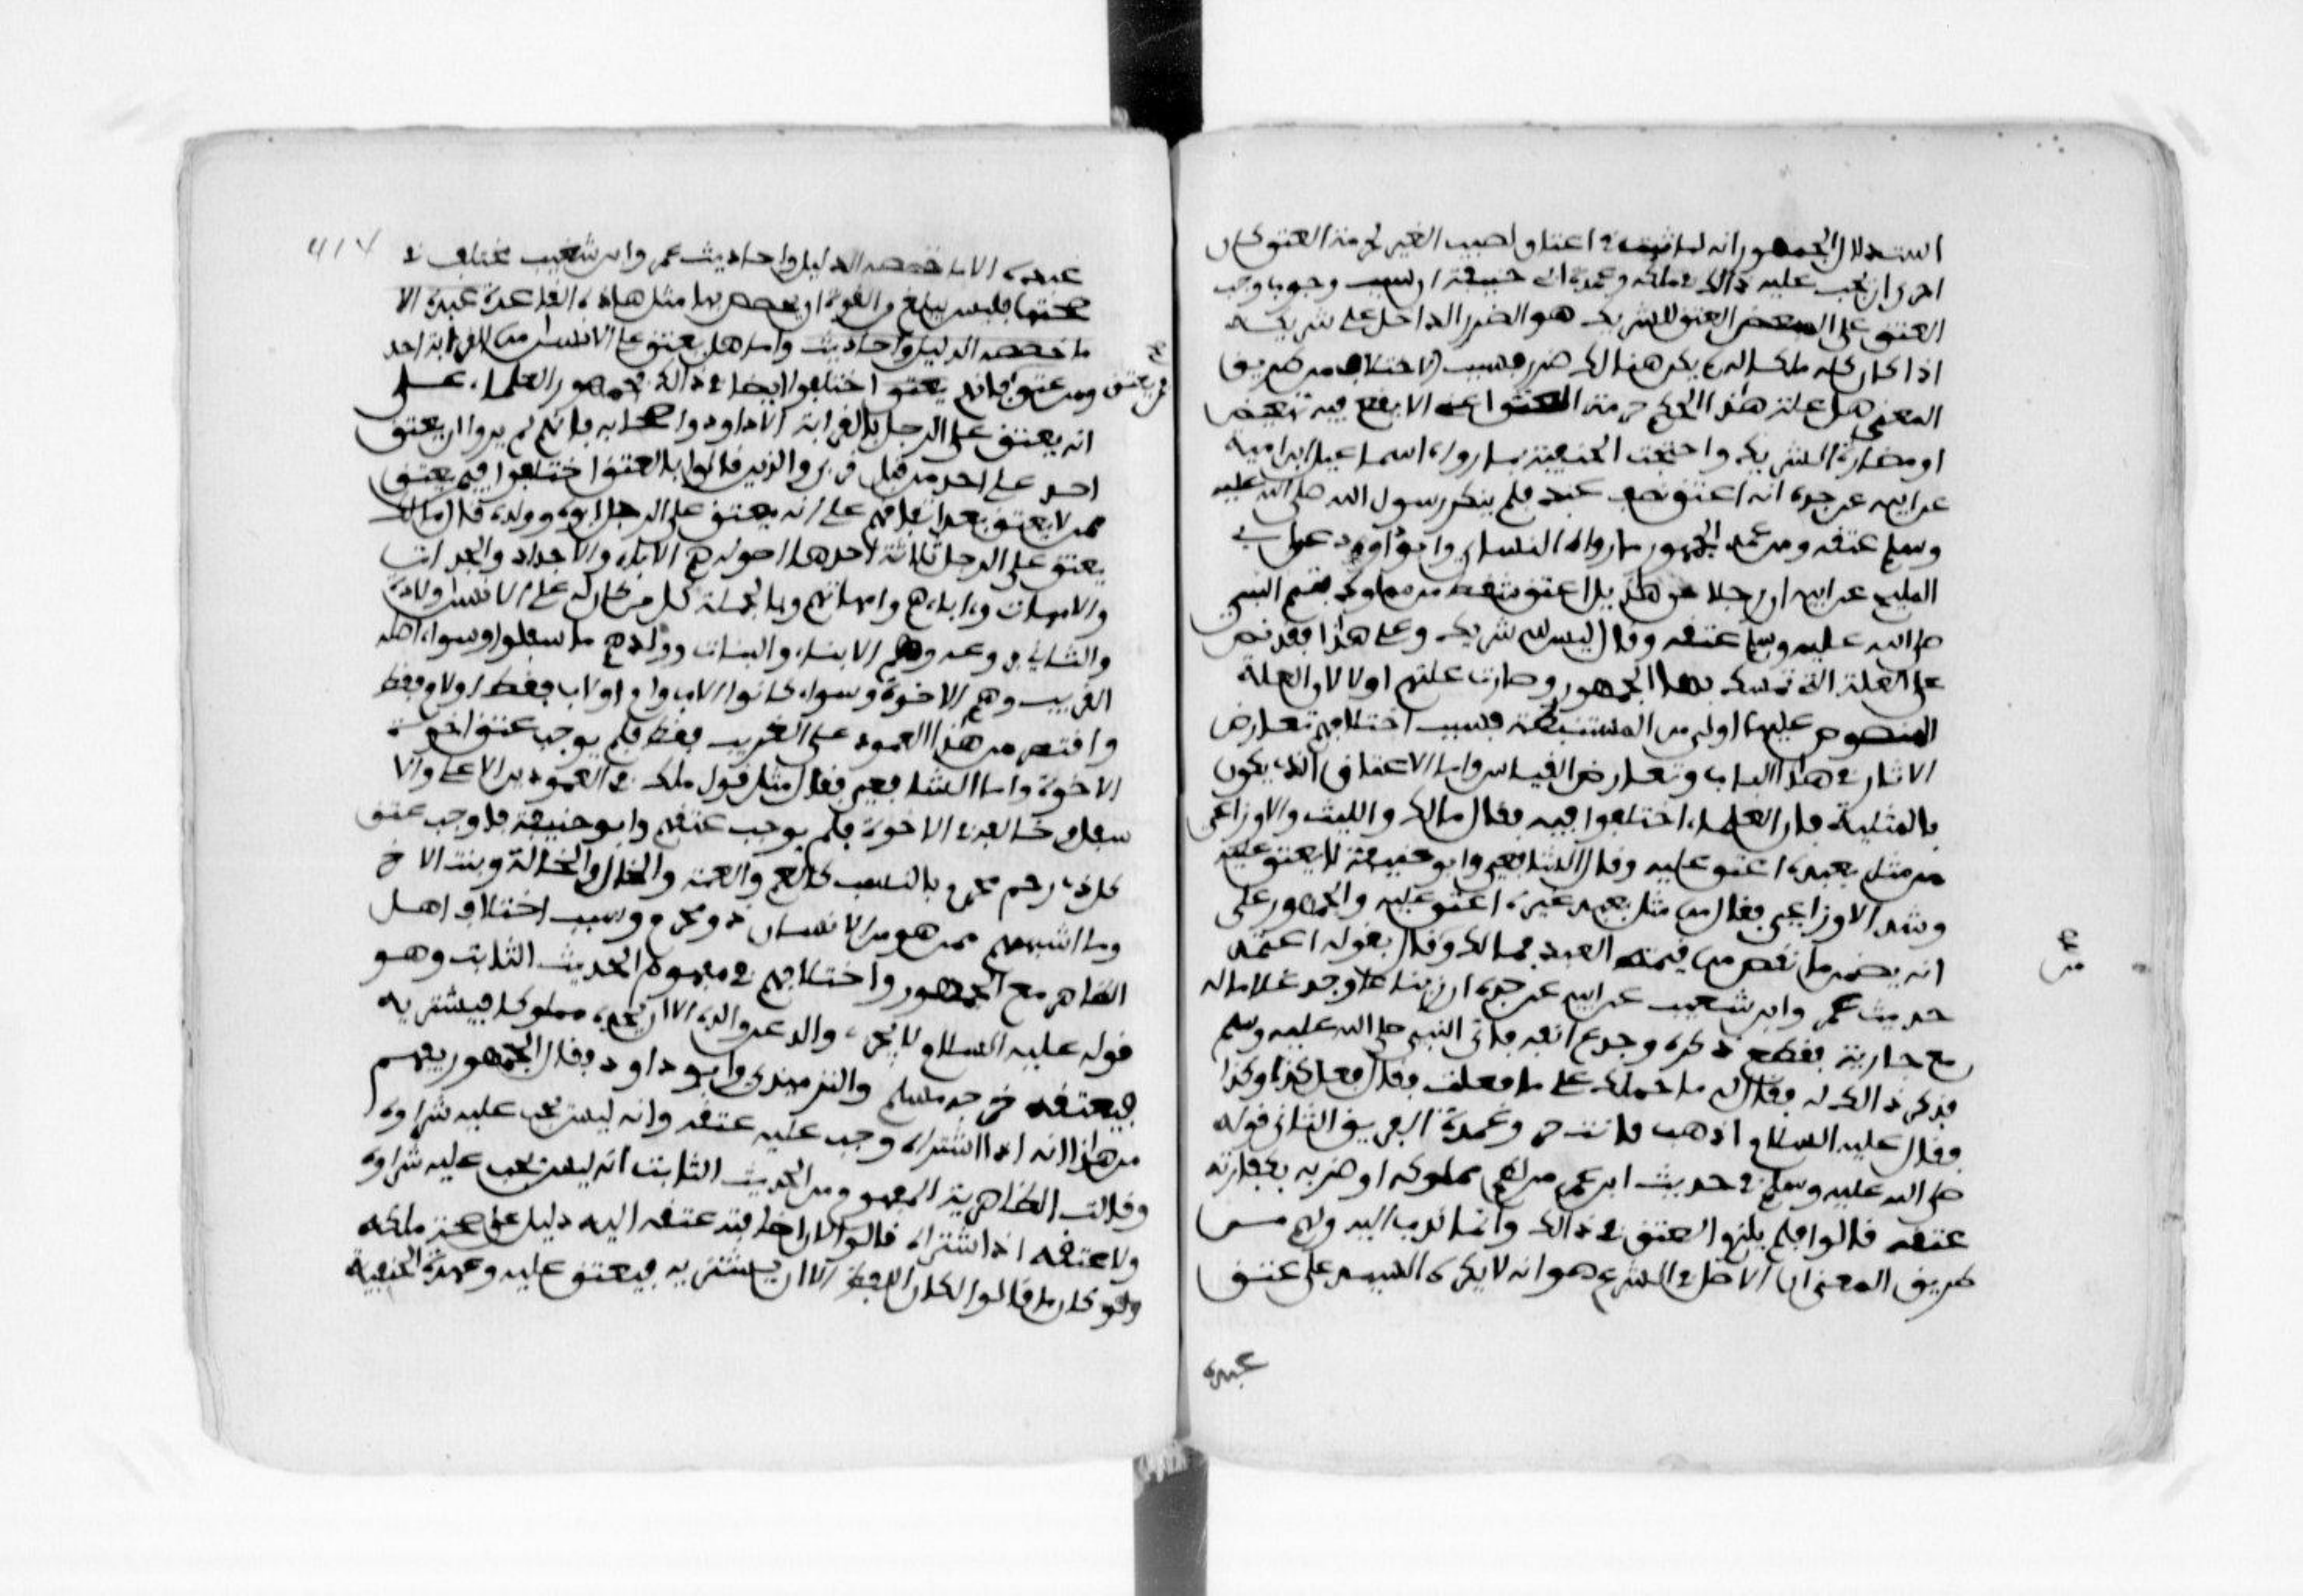 استدلال الجمهور انه لما ثبتت في اعتاق نصيب الغير لحرمة العتق كان
احرى ان يجب عليه ذالك في ملكه وعمدة ابي حنيفة ان سبب وجوبا وجب
العتق على المبعض العتق للشريك هو الضرر الداخل على شريكه
اذا كان كله ملكا له لم يكن هنالك ضرر فسبب الاختلاف من طريق
المعنى هل علة هذا الحكم حرمة العتق اعني الا يقع فيه تبعيض
او مضارة الشريك واحتجت الحنفية بما رواه اسماعيل بن امية
عن ابيه عن جده انه اعتق نصف عبده فلم ينكر رسول الله صلى الله عليه
وسلم عتقه ومن عمدة الجمهور ما رواه النسائي وابو داوود عن ابي
المليح عن ابيه ان رجلا من هذيل اعتق شقصا من مملوك فتمم النبي
صلى الله عليه وسلم عتقه وقال ليس لله شريك وعلى هذا فقد نص
على العلة التي تمسك بها الجمهور وصارت علتهم اولى لان العلة
المنصوص عليها اولى من المستنبطة فسبب اختلافهم تعارض
الاثار في هذا الباب وتعارض القياس واما الاعتاق الذي يكون
بالمثلة فان العلماء اختلفوا فيه فقال مالك والليث والاوزاعي
من مثل بعبده اعتق عليه وقال الشافعي وابو حنيفة لا يعتق عليه
وشذ الاوزاعي فقال من مثل بعبد غيره اعتق عليه والجمهور على
انه يضمن ما نقص من قيمته العبد فمالك وقال بقوله اعتمد
حديث عمرو ابن شعيب عن ابيه عن جده ان زنباعا وجد غلاما له
مع جارية فقطع ذكره وجدع انفه فاتى النبي صلى الله عليه وسلم
فذكر ذالك له فقال له ما حملك على ما فعلت فقال فعل كذا وكذا
فقال عليه السلام اذهب فانت حر وعمدة الفريق الثاني قوله
صلى الله عليه وسلم في حديث ابن عمر من لطم مملوكه او ضربه فكفارته
عتقه قالوا فلم يلزم العتق في ذالك وانما ندب اليه ولهم من
طريق المعنى ان الاصل في الشرع هو انه لا يكره السيد على عتق
عبده
من
عبده الا ما خصصه الدليل واحاديث عمرو ابن شعيب مختلف في
صحتها فليس يبلغ من القوة ان يخصص بها مثل هاذه القاعدة عبده الا
ما خصصه الدليل واحاديث واما هل يعتق على الانسان من القرابة احد
ومن عتق فانهم يعتق اختلفوا ايضا في ذالك فجمهور العلماء على
فمن يعتق
انه يعتق على الرجل بالقرابة الا داود واصحابه فانهم لم يروا ان يعتق
احد على احد من قبل قربى والذين قالوا بالعتق اختلفوا فيمن يعتق
ممن لا يعتق بعد اتفاقهم على انه يعتق على الرجل ابوه وولده فقال مالك
يعتق على الرجل ثلاثة احدها اصوله وهم الاباء والاجداد والجدات
والامهات وءاباءهم وامهاتهم وبالجملة كل من كان له على الانسان ولادة
والثاني فروعه وهم الابناء والبنات وولدهم ما سفلوا وسواء
القريب وهم الاخوة وسواء كانوا لاب وام او لاب فقط او لام فقط
واقتصر من هذا العمود على القريب فقط فلم يوجب عتق بني
الاخوة واما الشافعي فقال مثل قول مالك في العمودين الاعلى والا
سفل وخالفه في الاخوة فلم يوجب عتقهم وابو حنيفة فاوجب عتق
كل ذي رحم محرم بالنسب كالعم والعمة والخال والخالة وبنت الاخ
وما اشبههم ممن هو من الانسان ذو محرم وسبب اختلاف اهل
الظاهر مع الجمهور واختلافهم في مفهوم الحديث الثابت وهو
قوله عليه السلام لا يجزي والد عن والده الا ان يجده مملوكا فيشتريه
فيعتقه خرجه مسلم والترميذي وابو داود فقال الجمهور يفهم
من هاذا انه اذا اشتراه وجب عليه عتقه وانه ليس يجب عليه شراوه
وقالت الظاهرية المفهوم من الحديث الثابت انه ليس يجب عليه شراوه
ولا عتقه اذا اشتراه قالوا لان اضافته عتقه اليه دليل على صحة ملكه
ولو كان ما قالوا لكان اللفظ الا ان يشتريه فيعتق عليه وعمدة الحنفية